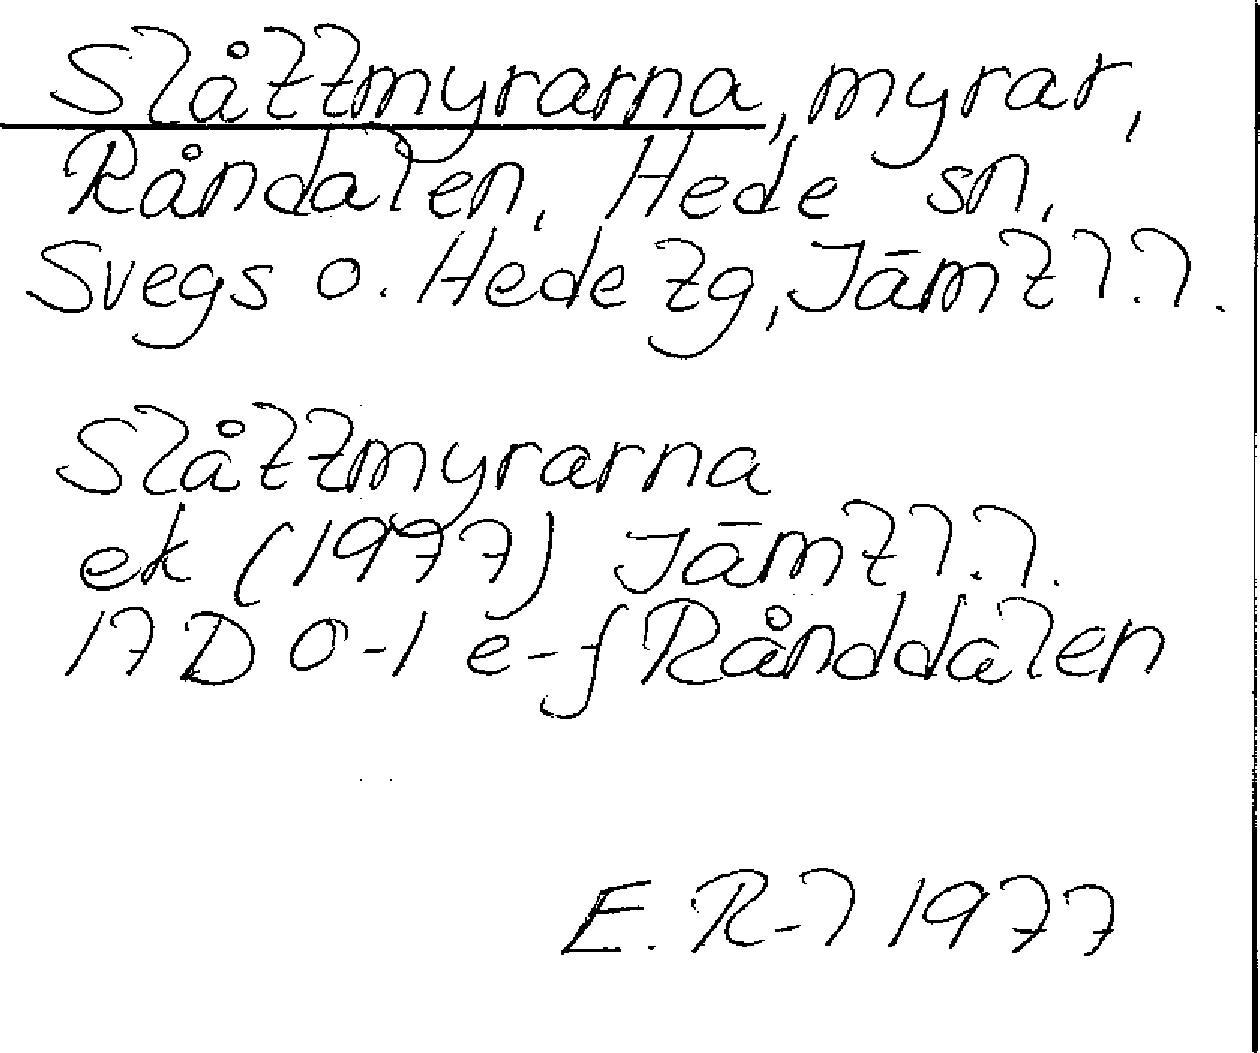 Slåttmyrarna, myrar,
Råndalen, Hede sn,
Svegs o. Hede tg, Jämtl.l.
Slåttmyrarna
ek (1977) Jämtl.l.
17D 0-1 e-f Rånddalen
E. R-l 1977